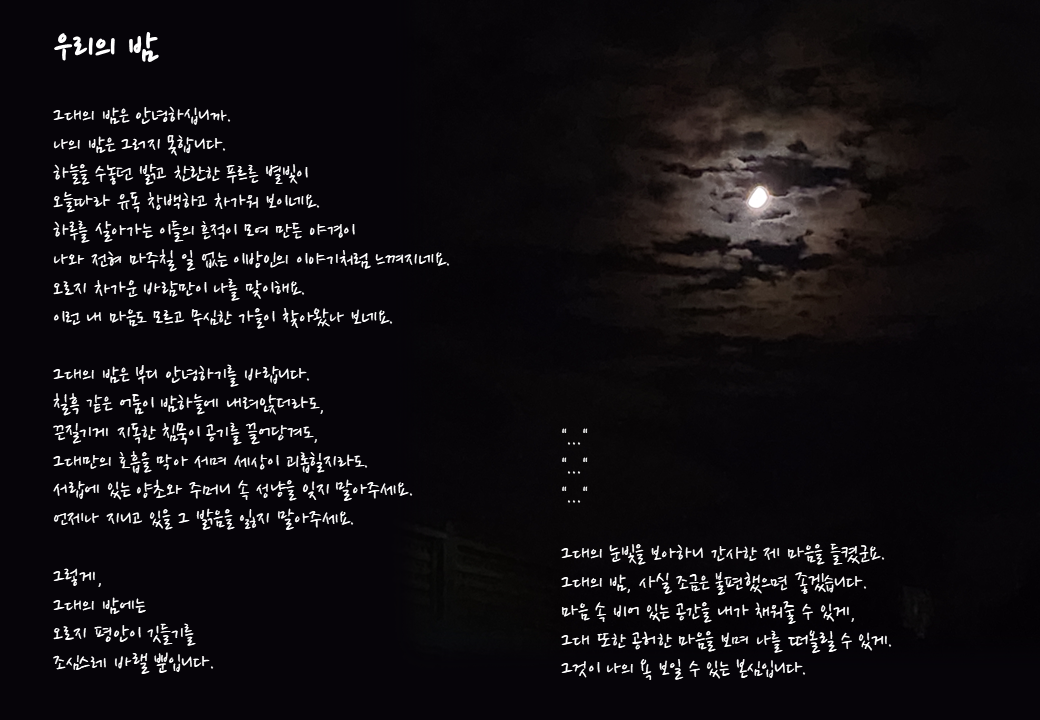 우리의 밤
그대의 밤은 안녕하십니까.
나의 밤은 그러지 못합니다.
하늘을 수놓던 밝고 찬란한 푸르른 별빛이
오늘따라 유독 창백하고 차가워 보이네요.
하루를 살아가는 이들의 흔적이 모여 만든 야경이
나와 전혀 마주칠 일 없는 이방인의 이야기처럼 느껴지네요.
오로지 차가운 바람만이 나를 맞이해요.
이런 내 마음도 모르고 무심한 가을이 찾아왔나 보네요.
그대의 밤은 부디 안녕하기를 바랍니다.
칠흑 같은 어둠이 밤하늘에 내려앉더라도,
끈질기게 지독한 침묵이 공기를 끌어당겨도,
그대만의 호흡을 막아 세며 세상이 괴롭힐지라도.
서랍에 있는 양초와 주머니 속 성냥을 잊지 말아주세요.
언제나 지니고 있을 그 밝음을 잃지 말아주세요.
그렇게,
그대의 밤에는
오로지 평안이 깃들기를
조심스레 바랠 뿐입니다.
“...“
“...“
“...“
그대의 눈빛을 보아하니 간사한 제 마음을 들켰군요.
그대의 밤, 사실 조금은 불편했으면 좋겠습니다.
마음 속 비어 있는 공간을 내가 채워줄 수 있게,
그대 또한 공허한 마음을 보며 나를 떠올릴 수 있게.
그것이 나의 욕 보일 수 있는 본심입니다.